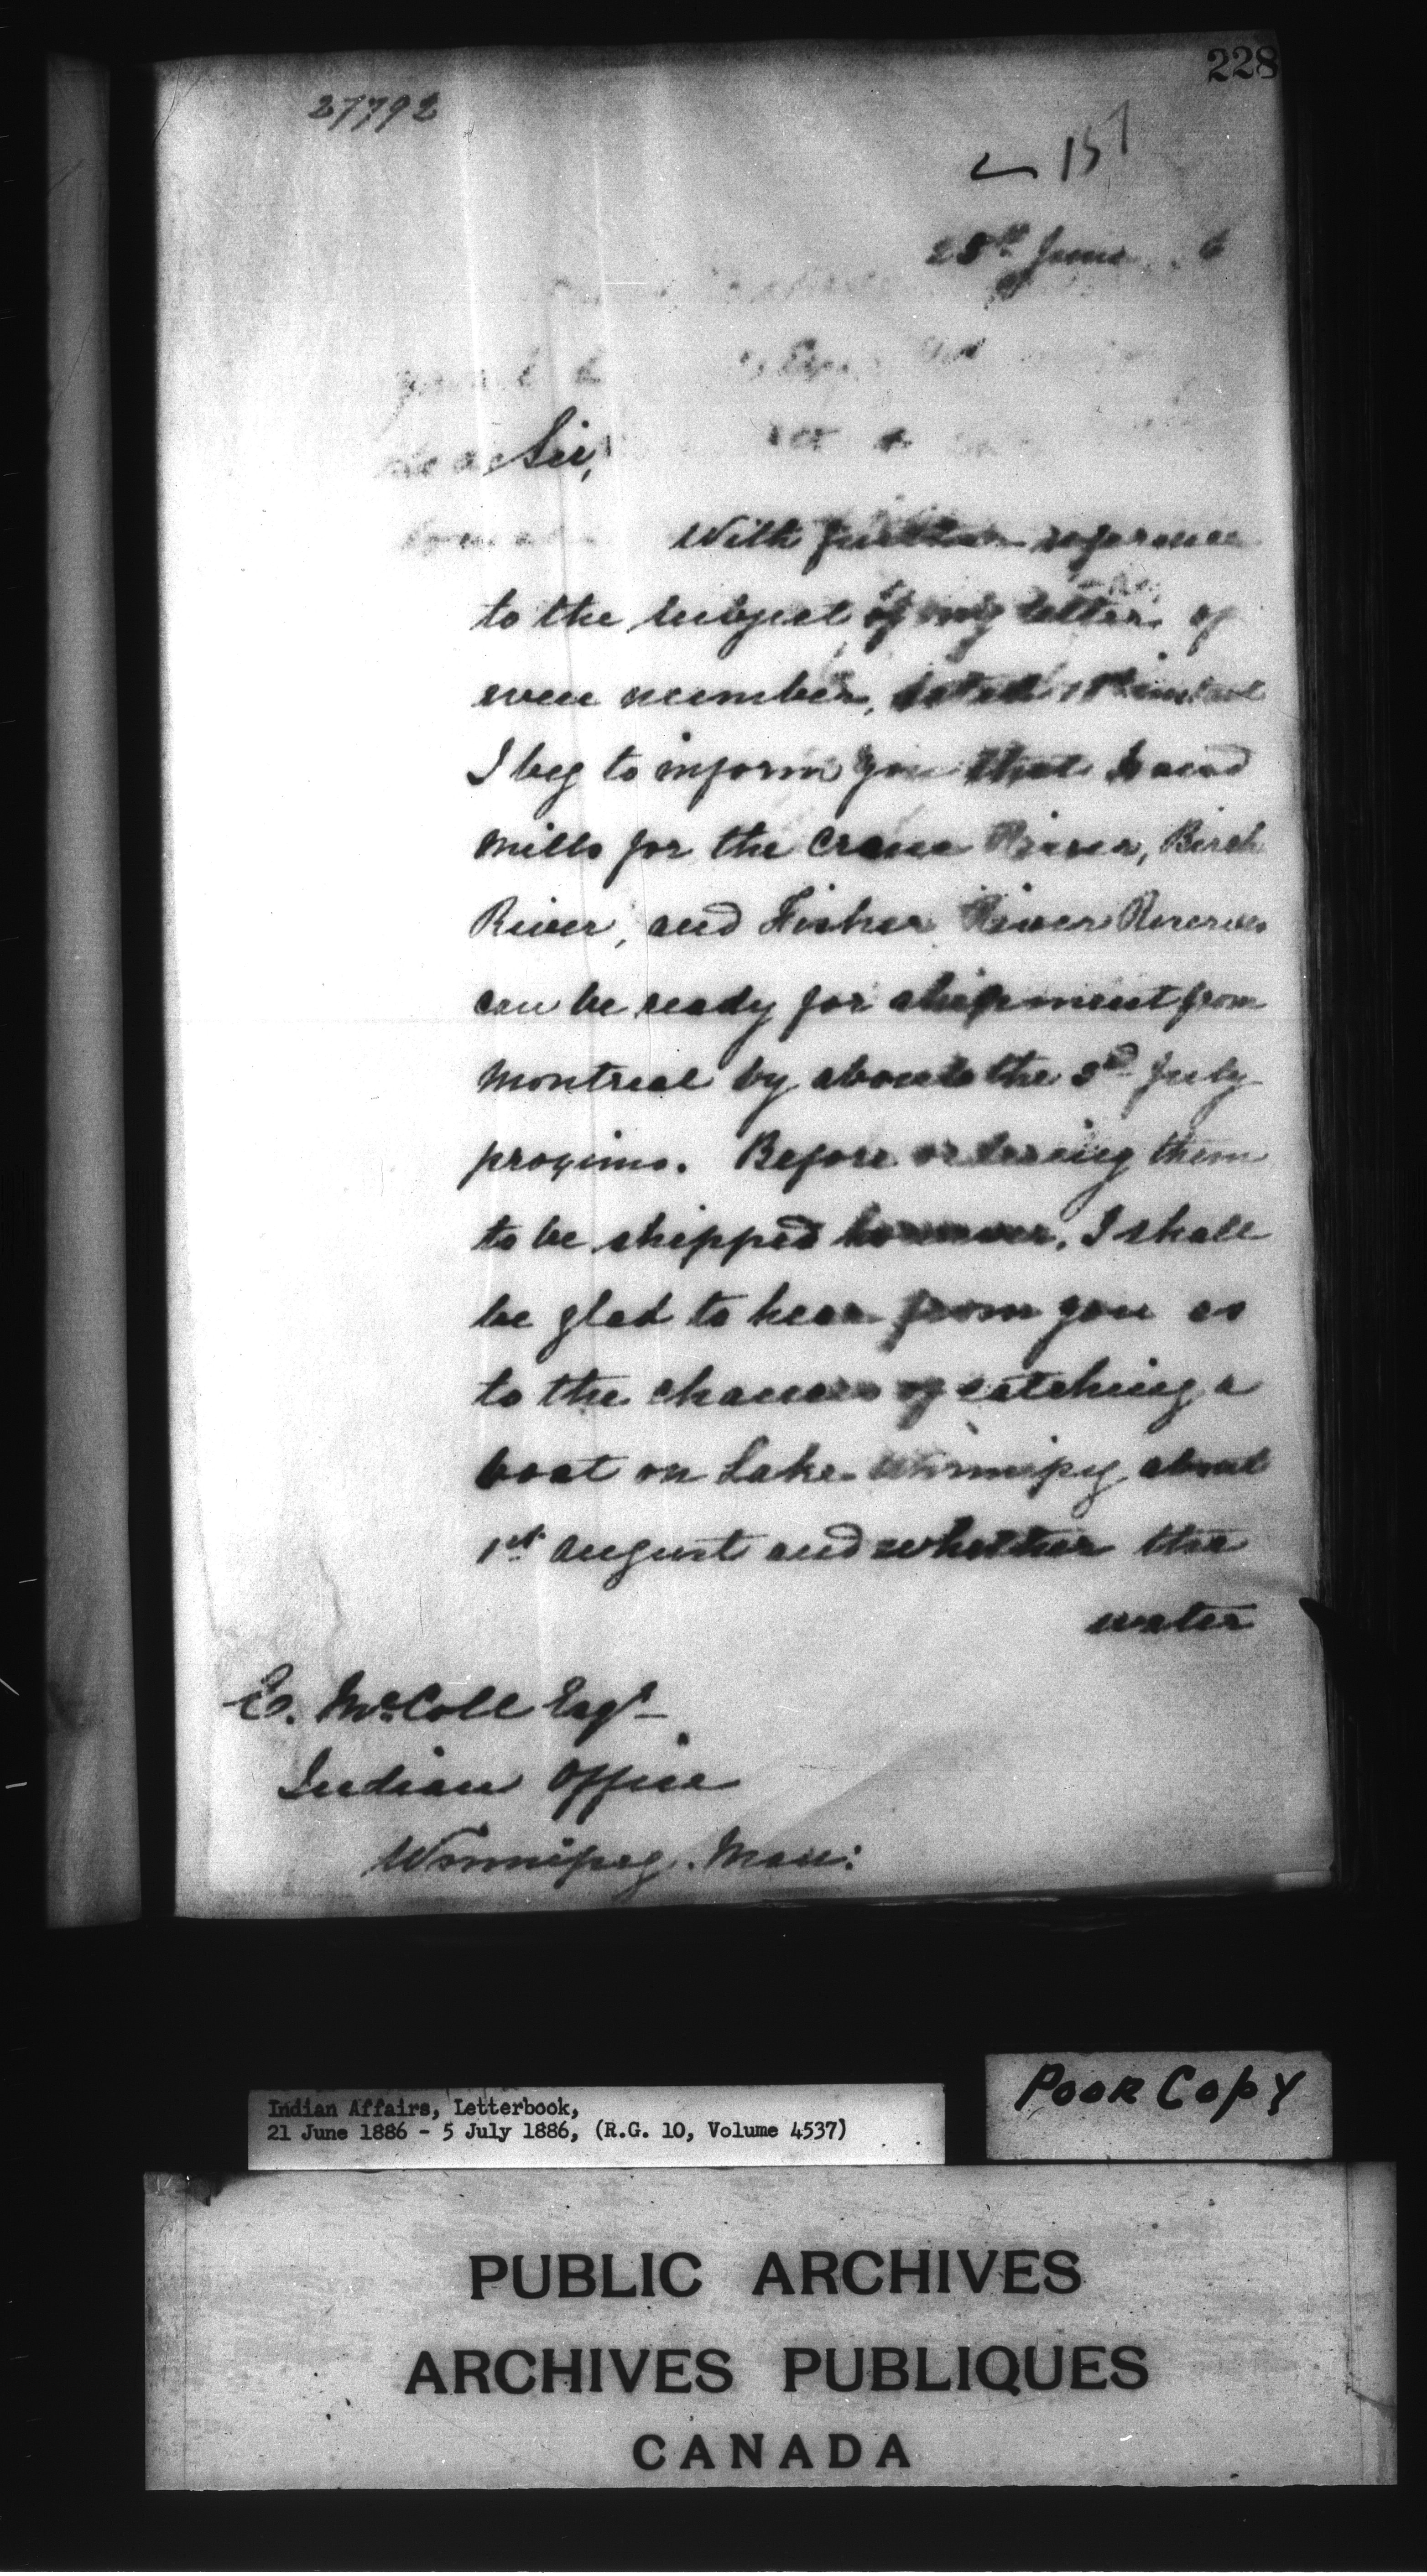 228
27792
151
25th June 6
Sir,
With further reference
to the subject of my letter of
even number, dated instant
I beg to inform you that hand
Mills for the Crane River, Birch
River, and Fisher River Reserves
can be ready for shipment from
Montreal by about the 3rd July
proximo. Before ordering them
to be shipped however, I shall
be glad to hear from you as
to the chances of catching a
boat on Lake Winnipeg about
1st August and whether the
water
E. McColl Esqr
Indian Office
Winnipeg. Man:
Poor Copy
Indian Affairs, Letterbook,
21 June 1886 - 5 July 1886, (R.G. 10, Volume 4537)
PUBLIC ARCHIVES
ARCHIVES PUBLIQUES
CANADA